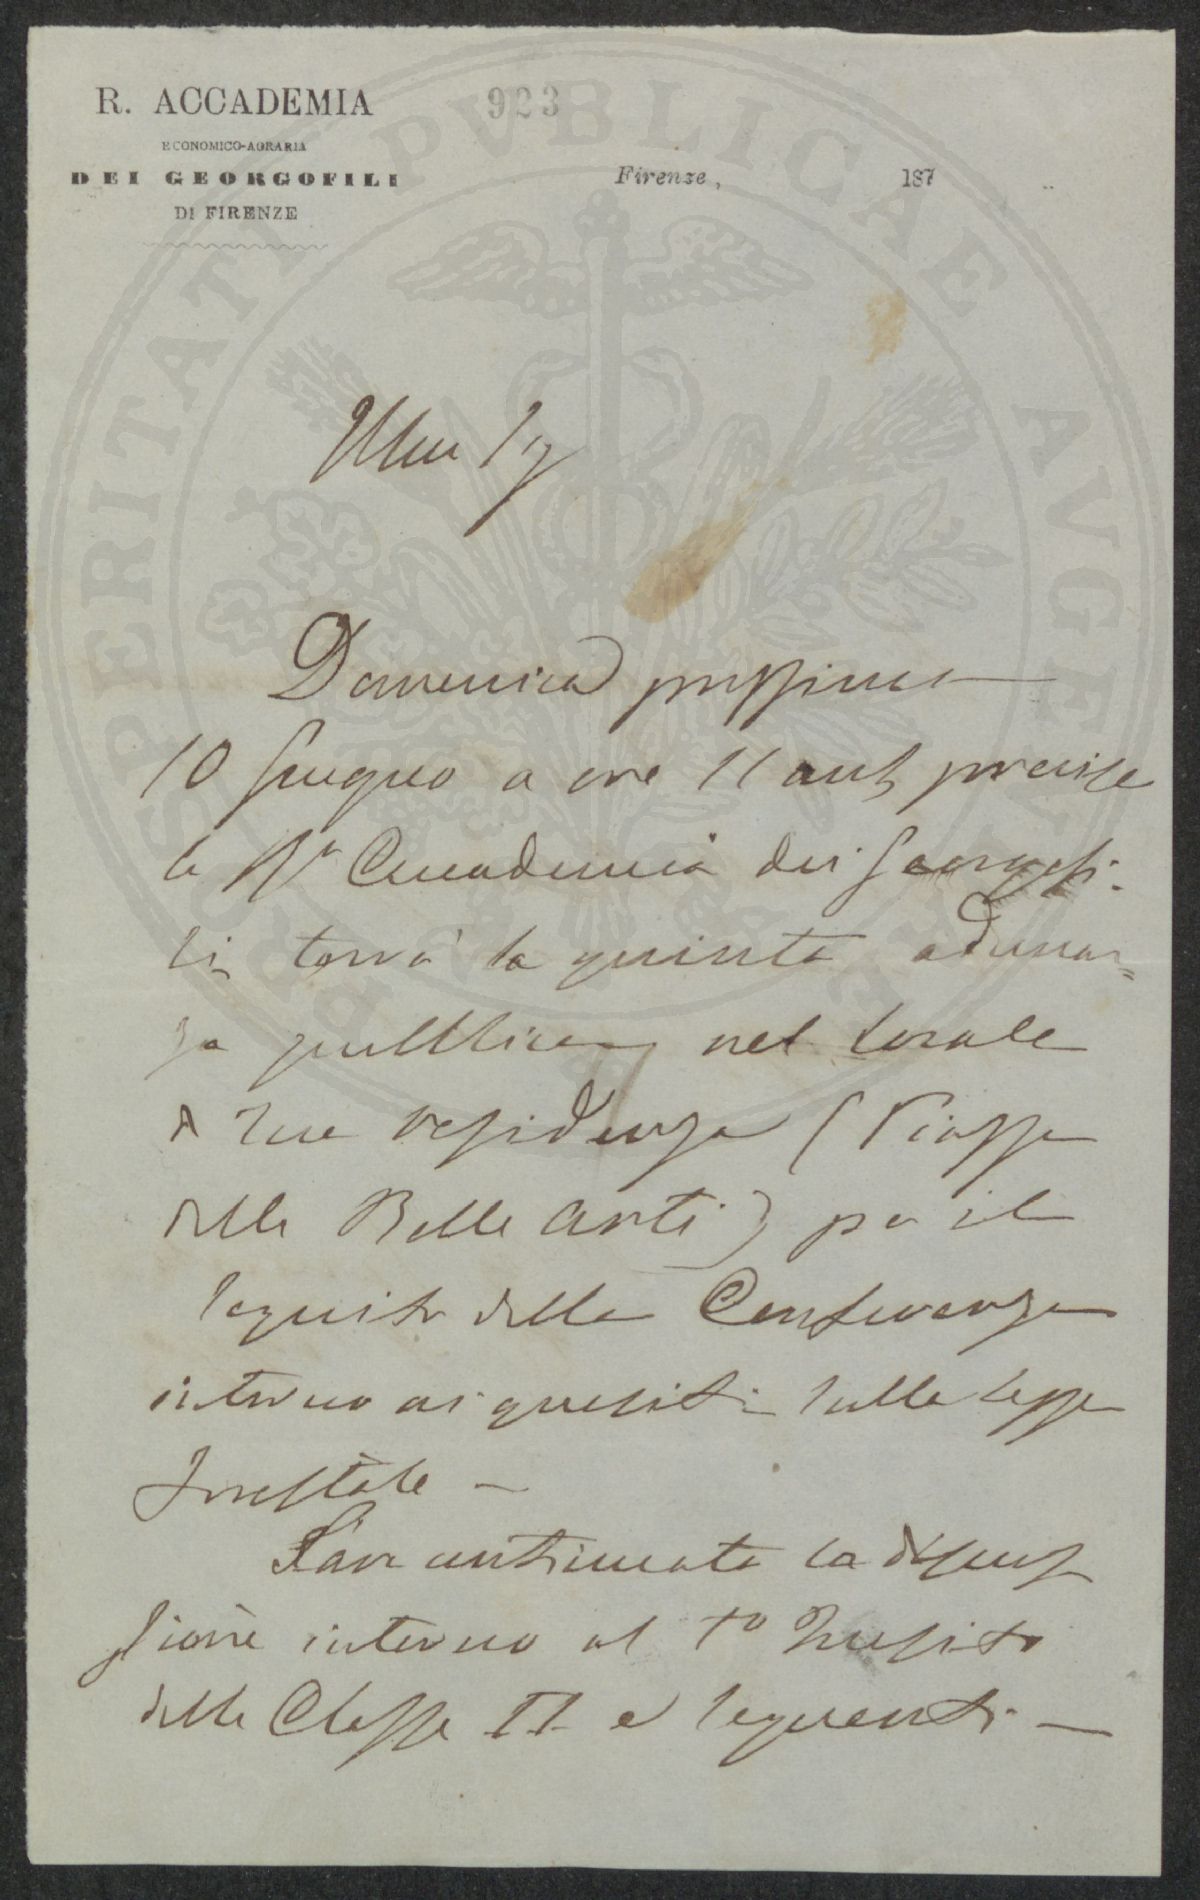 R. ACCADEMIA
ECONOMICO-AGRARIA
DEI GEORGOFILI
DI FIRENZE
923
Firenze, 187
PROSPERITATI PVBLICAE AVGENDAE
Illmo Sig
Domenica prossima
10 Giugno a ore 11 ant precise
la R.a Accademia dei Georgofi-
li terrà la quinta adunan=
za pubblica nel locale
di sua residenza (Piazza
delle Belle Arti) per il
seguito della Conferenza
intorno ai quesiti sulla legge
forestale —
Sarà continuata la discus
sione intorno al 1o Quesito
della Classe II e seguenti —